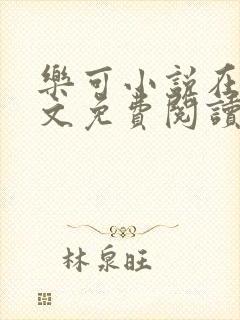 樂可小説在
文免費閱讀
林泉旺